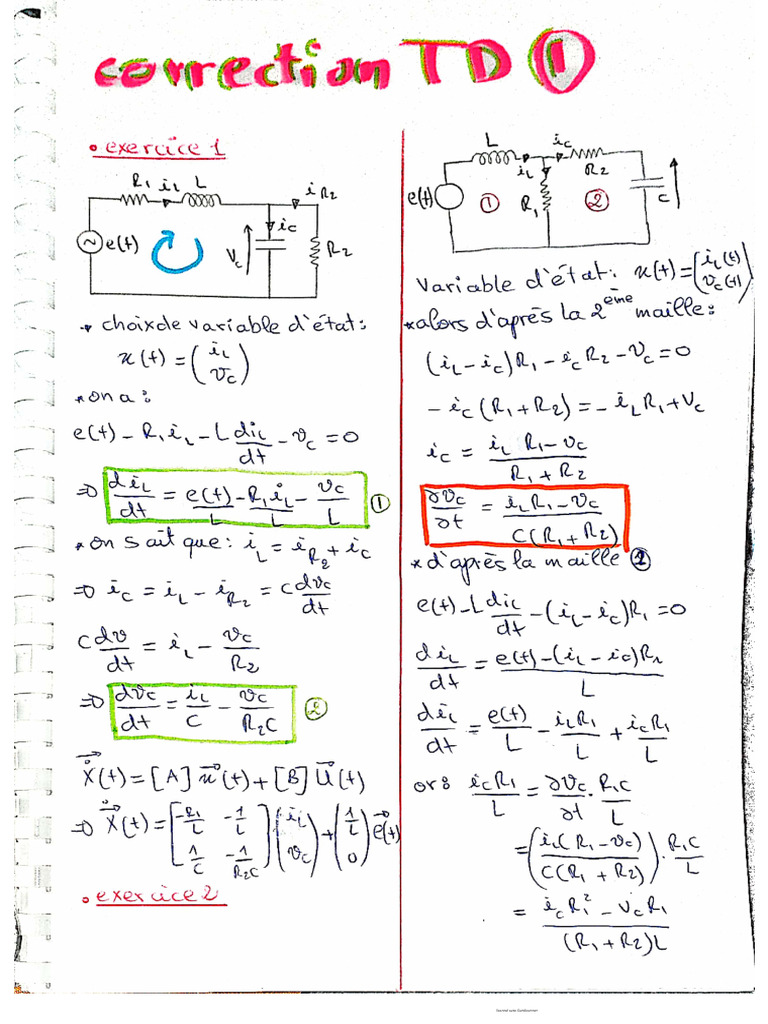 correction TD ①
• exercice 1
R₁ iL L i R₂
e(t) Vc ic R₂
→ choix de variable d'état:
x(t) = (iL
vc)
* on a:
e(t) - R₁ iL - L diL/dt - vc = 0
⇒ diL/dt = e(t)/L - R₁iL/L - vc/L ①
* on sait que: iL = iR₂ + ic
⇒ ic = iL - iR₂ = c dvc/dt
c dv/dt = iL - vc/R₂
⇒ dvc/dt = iL/C - vc/R₂C ②
Ẋ(t) = [A] x(t) + [B] U(t)
⇒ Ẋ(t) = [-R₁/L -1/L
1/C -1/R₂C] (iL
vc) + (1/L
0) e(t)
• exercice 2
L ic
iL R₂
e(t) ① R₁ ② C
variable d'état: x(t) = (iL(t)
vc(t))
* alors d'après la 2ème maille:
(iL - ic) R₁ - ic R₂ - vc = 0
- ic (R₁ + R₂) = - iL R₁ + Vc
ic = iL R₁ - vc / R₁ + R₂
∂vc/∂t = iL R₁ - vc / C(R₁ + R₂)
* d'après la maille ②
e(t) - L diL/dt - (iL - ic) R₁ = 0
diL/dt = e(t) - (iL - ic) R₁ / L
diL/dt = e(t)/L - iLR₁/L + icR₁/L
or: icR₁/L = ∂vc/∂t . R₁C/L
= (iL(R₁ - vc) / C(R₁ + R₂)) . R₁C/L
= ic R₁² - vc R₁ / (R₁ + R₂)L